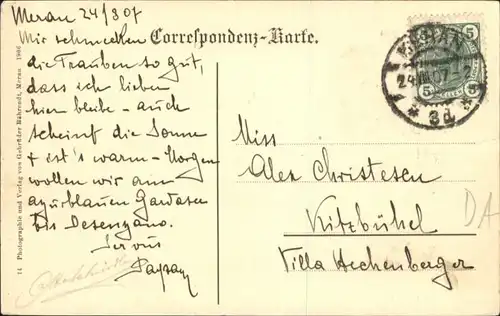 Meran 24/8 07
Correspondenz-Karte.
Mir schmecken
die Trauben so gut,
dass ich lieber
hier bleibe – auch
scheint die Sonne
+ ist's warm – Morgen
wollen wir am
azurblauen Gardasee
bis Desenzano.
Servus
14 Photographie und Verlag von Gebrüder Bährendt, Meran 1906
MERAN
24.VIII.07
* 3d *
5 5
5 5
Miss
Alex Christesen
Kitzbühel
Villa Hechenberger
DA